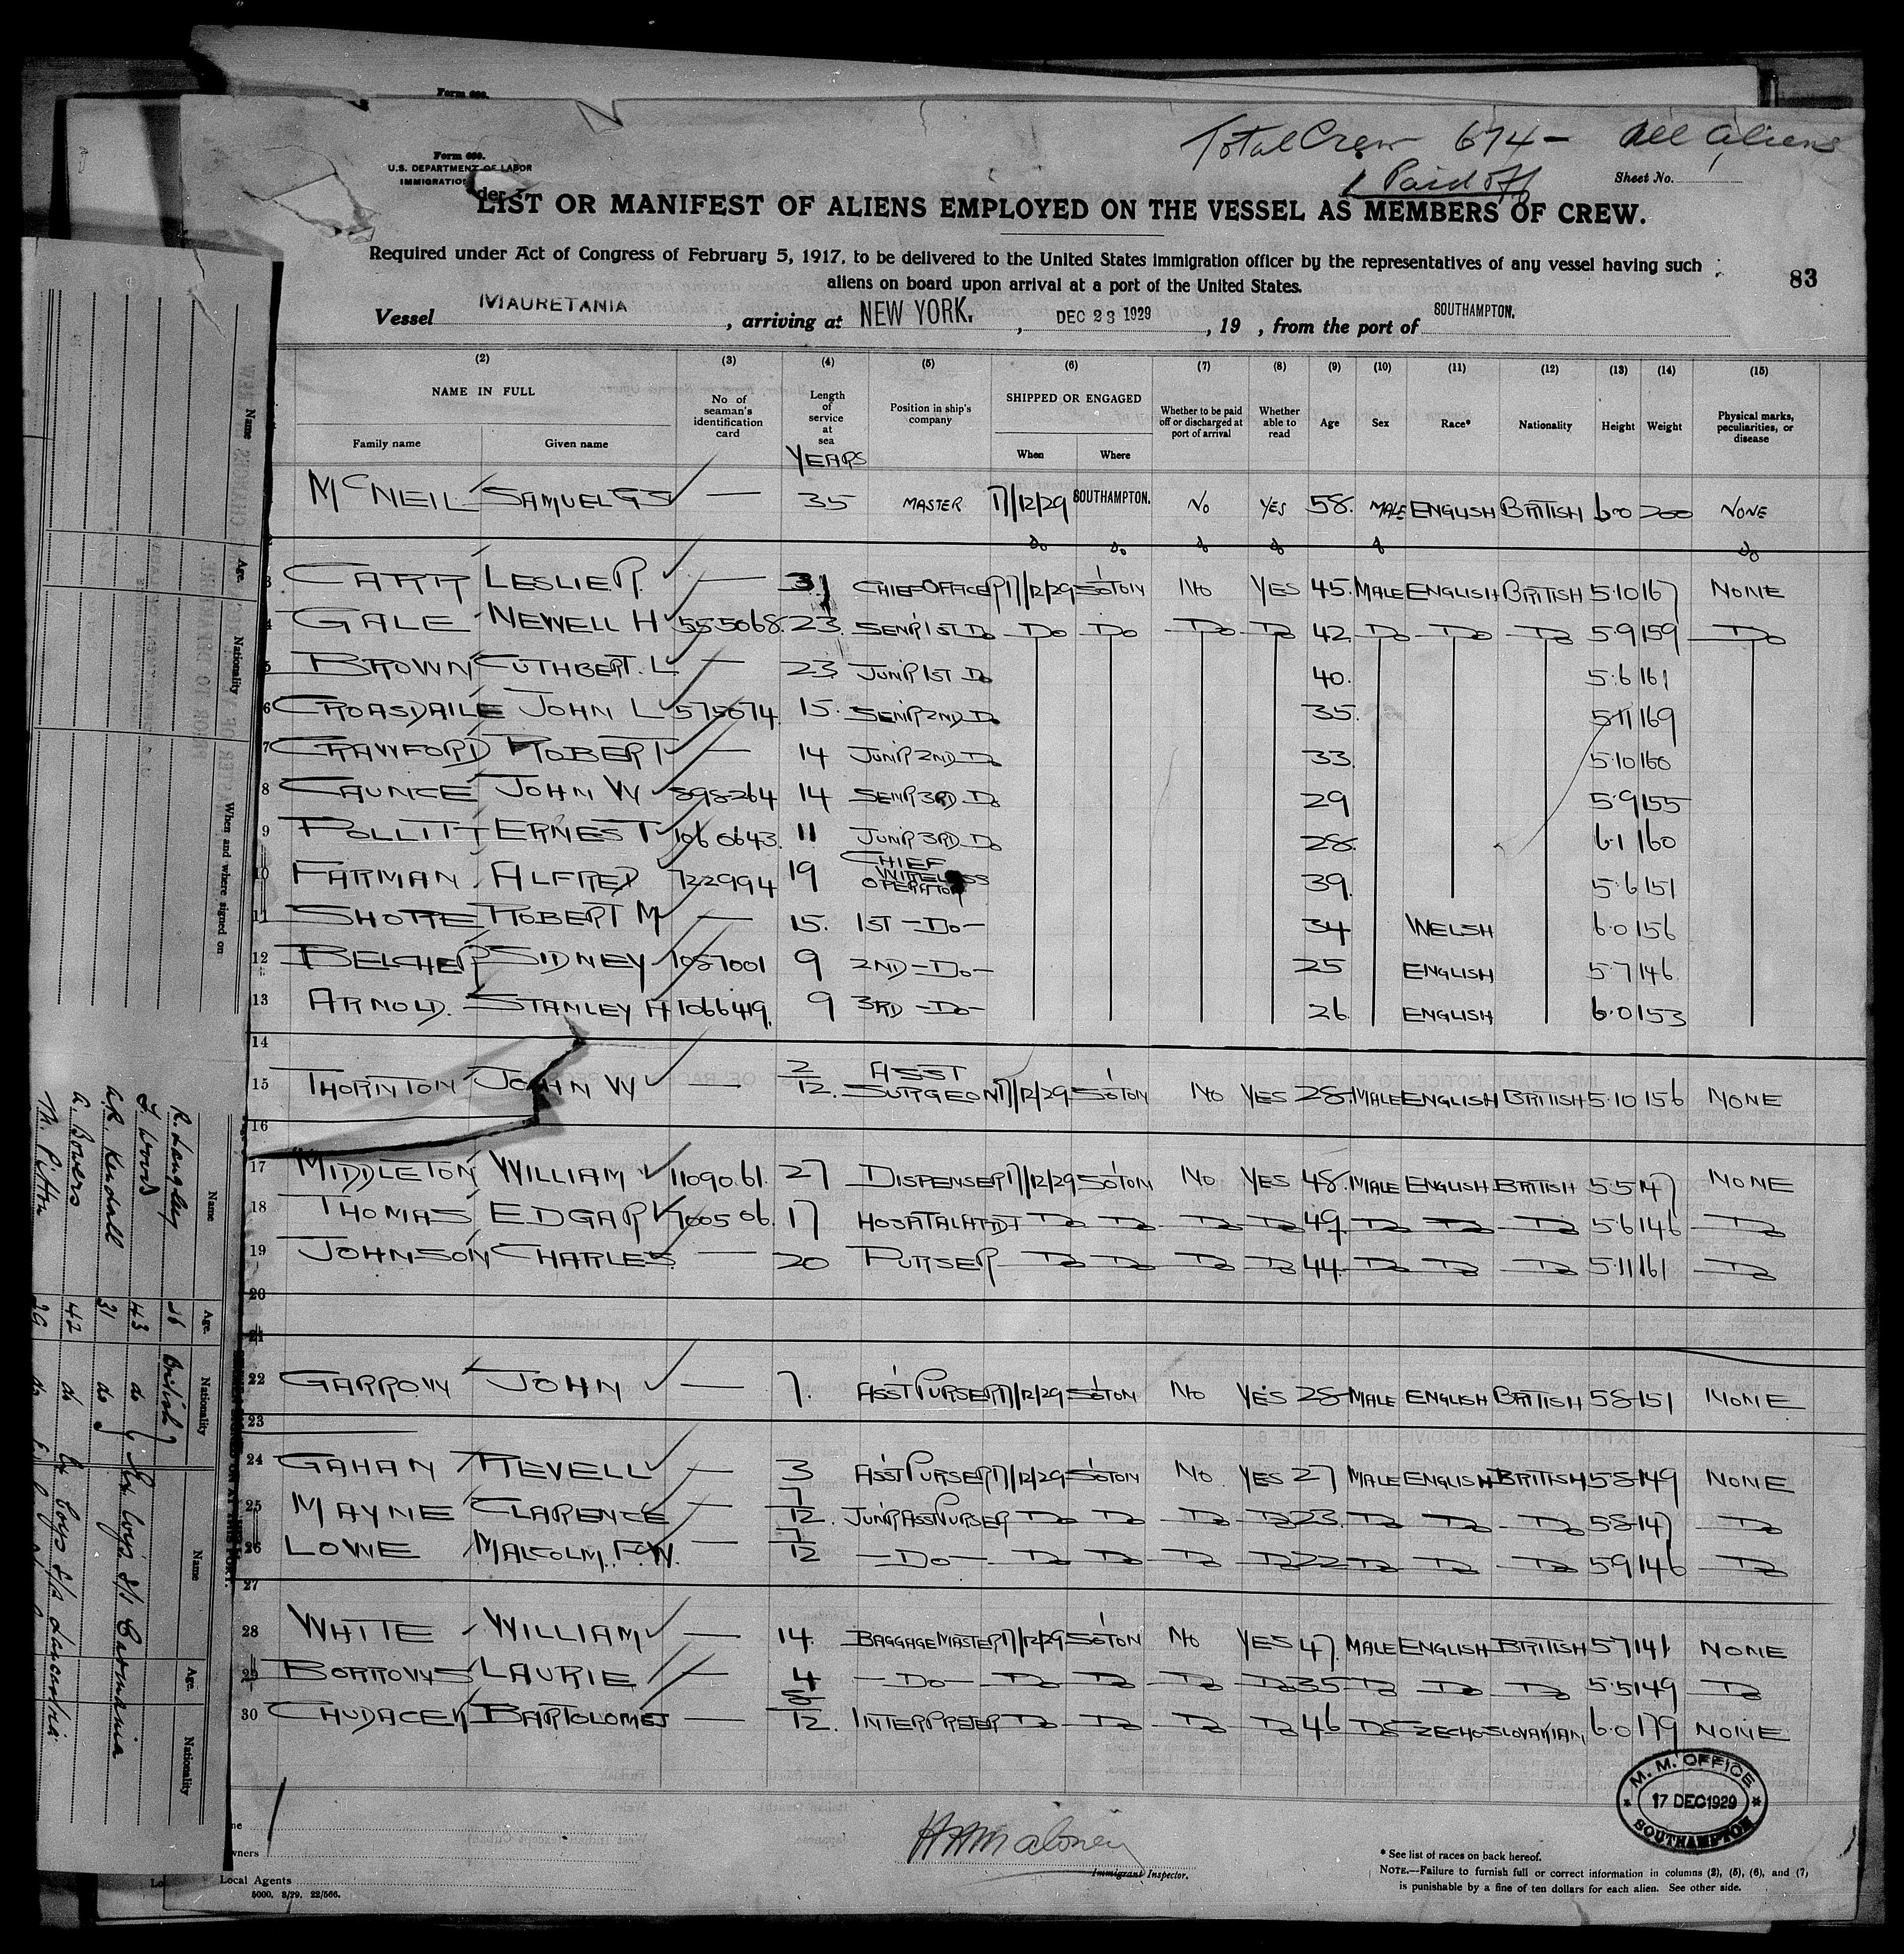 Form 690.
Total Crew 674 - All Aliens
1 Paid off
Form 690.
U.S. DEPARTMENT OF LABOR
IMMIGRATION
Sheet No.
LIST OR MANIFEST OF ALIENS EMPLOYED ON THE VESSEL AS MEMBERS OF CREW.
Required under Act of Congress of February 5, 1917, to be delivered to the United States immigration officer by the representatives of any vessel having such
aliens on board upon arrival at a port of the United States.
83
Vessel MAURETANIA, arriving at NEW YORK., DEC 23 1929, 19 , from the port of SOUTHAMPTON.
(2) (3) (4) (5) (6) (7) (8) (9) (10) (11) (12) (13) (14) (15)
NAME IN FULL Family name Given name
No of seaman's identification card
Length of service at sea YEARS
Position in ship's company
SHIPPED OR ENGAGED When Where
Whether to be paid off or discharged at port of arrival
Whether able to read
Age Sex Race* Nationality Height Weight
Physical marks, peculiarities, or disease
McNEIL SAMUEL G S — 35 MASTER 17/12/29 SOUTHAMPTON. NO YES 58. MALE ENGLISH BRITISH 6·0 200 NONE
2 do do do do do do
3 CARR LESLIE R. — 31 CHIEF OFFICER 17/12/29 SO'TON NO YES 45. MALE ENGLISH BRITISH 5·10 167 NONE
4 GALE NEWELL H 555068. 23. SENR 1ST DO DO DO DO DO 42 DO DO DO 5·9 159 DO
5 BROWN CUTHBERT. L — 23 JUNR 1ST DO 40. 5·6 161
6 CROASDAILE JOHN L 575674. 15. SENR 2ND DO 35. 5·11 169
7 CRAWFORD ROBERT — 14 JUNR 2ND DO 33. 5·10 160
8 CAUNCE JOHN W 898264 14 SENR 3RD DO 29 5·9 155
9 POLLITT ERNEST 1060643. 11 JUNR 3RD DO 28. 6·1 160
10 FARMAN ALFRED 722994 19 CHIEF WIRELESS OPERATOR 39. 5·6 151
11 SHORE ROBERT M — 15. 1ST -DO- 34 WELSH 6·0 156
12 BELCHER SIDNEY 1057001 9 2ND -DO- 25 ENGLISH 5·7 146
13 ARNOLD. STANLEY H 1066419. 9 3RD -DO- 26 ENGLISH 6·0 153
14
15 THORNTON JOHN W — 2/12. ASST SURGEON 17/12/29 SO'TON NO YES 28. MALE ENGLISH BRITISH 5·10 156 NONE
16
17 MIDDLETON WILLIAM 1109061. 27 DISPENSER 17/12/29 SO'TON NO YES 48. MALE ENGLISH BRITISH 5·5 147 NONE
18 THOMAS EDGAR 700506. 17 HOSPITAL ATTDT DO DO DO DO 49. DO DO DO 5·6 146 DO
19 JOHNSON CHARLES — 20 PURSER DO DO DO DO 44. DO DO DO 5·11 161 DO
20
21
22 GARROW JOHN — 7. ASS'T PURSER 17/12/29 SO'TON NO YES 28 MALE ENGLISH BRITISH 5·8 151 NONE
23
24 GAHAN REVELL — 3 ASS'T PURSER 17/12/29 SO'TON NO. YES 27 MALE ENGLISH BRITISH 5·8 149 NONE
25 MAYNE CLARENCE — 7/12. JUNR ASST PURSER DO DO DO DO 23. DO DO DO 5·8 147 DO
26 LOWE MALCOLM. F.W. — 7/12 -DO- DO DO DO DO 22 DO DO DO 5·9 146 DO
27
28 WHITE WILLIAM — 14. BAGGAGE MASTER 17/12/29 SO'TON NO YES 47. MALE ENGLISH BRITISH 5·7 141 NONE
29 BORROWS LAURIE — 4 -DO- DO DO DO DO 35 DO DO DO 5·5 149 DO
30 CHUDACEK BARTOLOMEJ — /12. INTERPRETER DO DO DO DO 46 DO CZECHOSLOVAKIAN 6·0 179 NONE
M. M. OFFICE
17 DEC 1929
SOUTHAMPTON
Immigrant Inspector.
* See list of races on back hereof.
NOTE.—Failure to furnish full or correct information in columns (2), (5), (6), and (7),
is punishable by a fine of ten dollars for each alien. See other side.
Local Agents
5000. 8/29. 22/566.
Name Age. Nationality When and where signed on
Name Age. Nationality Name Age. Nationality
R. Langley British
J. Wood 43 do
A.R. Kendall 31 do
A. Bowers 42 do